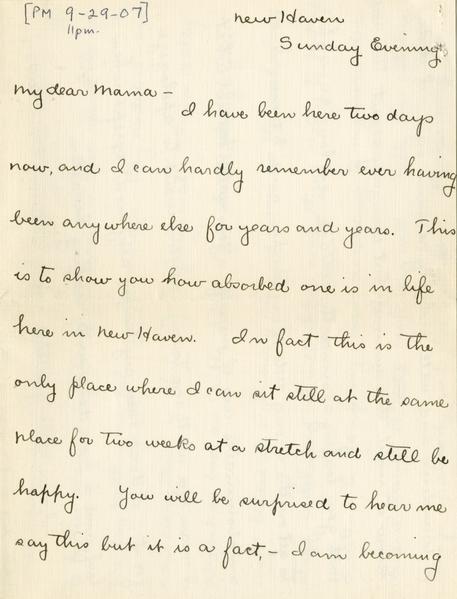 [PM 9-29-07]
11pm.
New Haven
Sunday Evening
My dear Mama –
I have been here two days
now, and I can hardly remember ever having
been anywhere else for years and years. This
is to show you how absorbed one is in life
here in New Haven. In fact this is the
only place where I can sit still at the same
place for two weeks at a stretch and still be
happy. You will be surprised to hear me
say this but it is a fact, – I am becoming